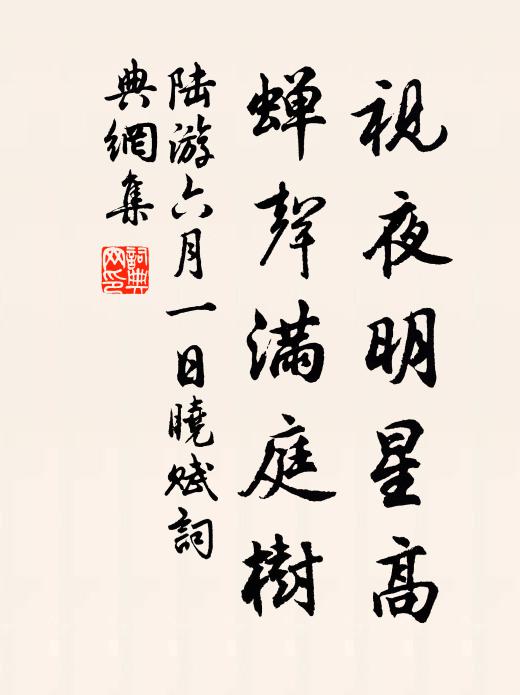 視夜明星高
蟬聲滿庭樹
陆游六月一日曉赋詞
典網集
詞典
网印